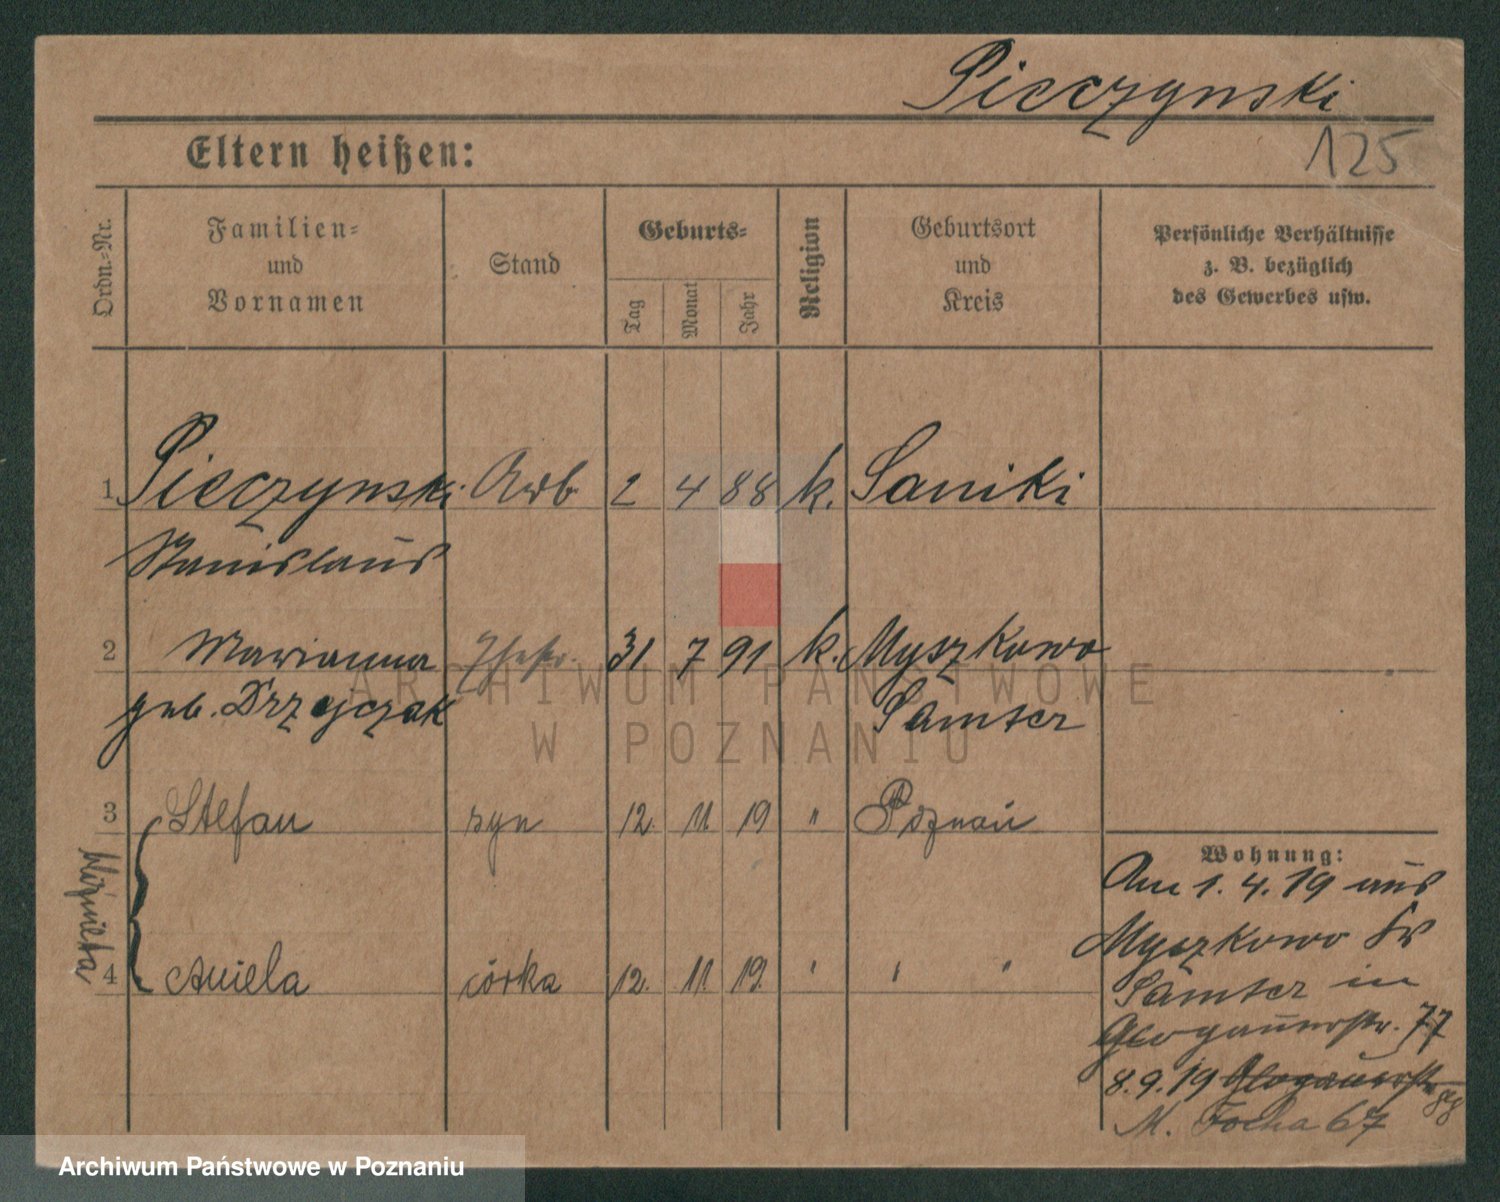 Pieczynski
125
Eltern heißen:
Ordn.-Nr.
Familien-
und
Vornamen
Stand
Geburts-
Tag
Monat
Jahr
Religion
Geburtsort
und
Kreis
Persönliche Verhältnisse
z. B. bezüglich
des Gewerbes usw.
1 Pieczynski Arb 2 4 88 k. Saniki
Stanislaus
2 Marianna Ehefr. 31 7 91 k. Myszkowo
geb. Drzejczak Samter
3 Stefan syn 12. 11 19 " Poznań
4 Aniela córka 12. 11. 19. " " "
Wohnung:
Am 1. 4. 19 aus
Myszkowo Kr
Samter in
Glogauerstr. 77
8. 9. 19 Glogauerstr 88
M. Focha 67
ARCHIWUM PAŃSTWOWE
W POZNANIU
Archiwum Państwowe w Poznaniu